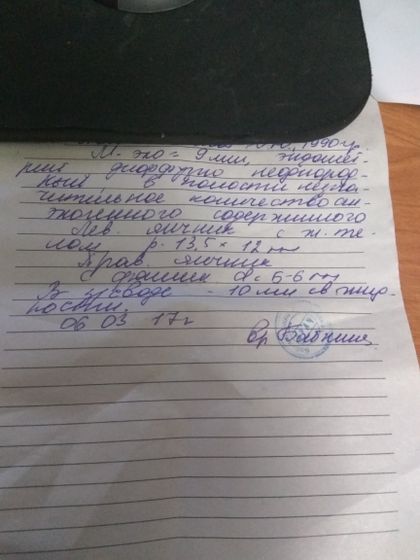 1990 гр.
М-эхо = 9 мм, эндомет-
рий диффузно неоднород-
ный, в полости незна-
чительное количество ан-
эхогенного содержимого
Лев. яичник с ж. те-
лом р. 13,5 × 12 мм
Прав. яичник
с d = 5-6 мм
В - 10 мм св. жид-
кости.
06 03 17г
Вр